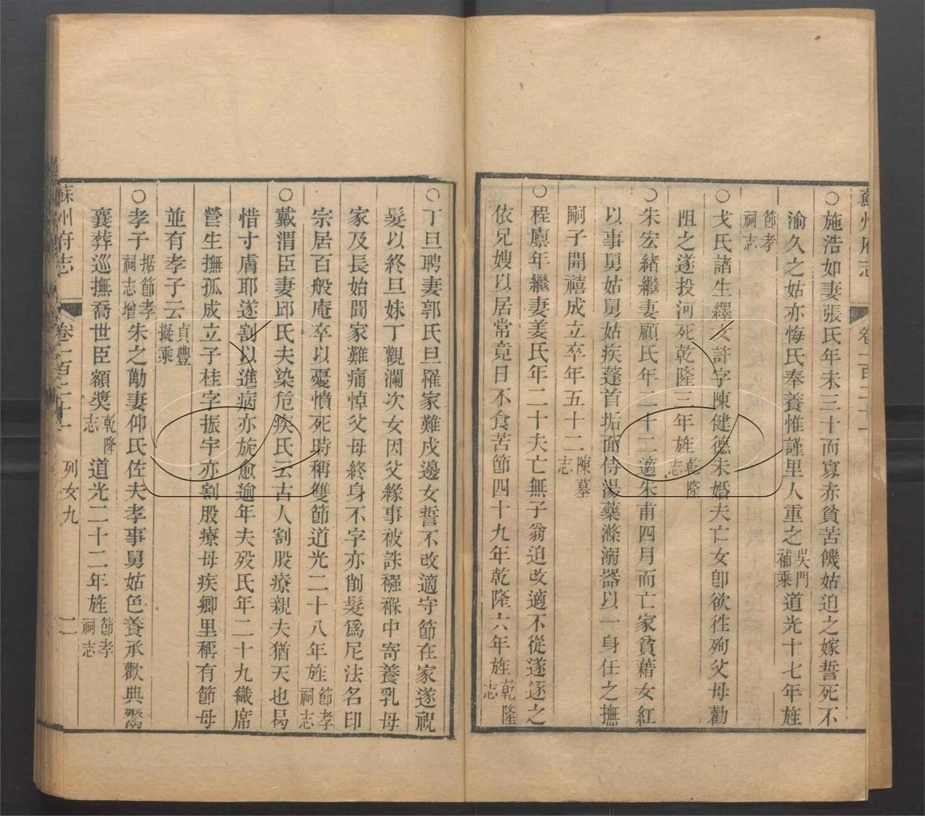 ○施浩如妻張氏年未三十而寡赤貧苦饑姑迫之嫁誓死不
渝久之姑亦悔氏奉養惟謹里人重之吳門補乘道光十七年旌
節孝祠志
○戈氏諸生繹女許字陳健德未婚夫亡女卽欲徃殉父母勸
阻之遂投河死乾隆三年旌乾隆志
○朱宏緒繼妻顧氏年二十二適朱甫四月而亡家貧藉女紅
以事舅姑舅姑疾蓬首垢面侍湯藥滌溺器以一身任之撫
嗣子開禧成立卒年五十二陳墓志
○程廪年繼妻姜氏年二十夫亡無子翁迫改適不從遂逐之
依兄嫂以居常竟日不食苦節四十九年乾隆六年旌乾隆志
○丁旦聘妻郭氏旦罹家難戍邊女誓不改適守節在家遂祝
髮以終旦妹丁觀瀾次女因父緣事被誅襁褓中寄養乳母
家及長始聞家難痛悼父母終身不字亦削髮爲尼法名印
宗居百般庵卒以憂憤死時稱雙節道光二十八年旌節孝祠志
○戴渭臣妻邱氏夫染危疾氏云古人割股療親夫猶天也曷
惜寸膚耶遂割以進病亦旋愈逾年夫殁氏年二十九織席
營生撫孤成立子桂字振宇亦割股療母疾鄉里稱有節母
並有孝子云貞豐擬乘
○孝子据節孝祠志增朱之勱妻仰氏佐夫孝事舅姑色養承歡典鬻
襄葬巡撫喬世臣額奬乾隆志道光二十二年旌節孝祠志
蘇州府志
卷一百二十一
列女九
二